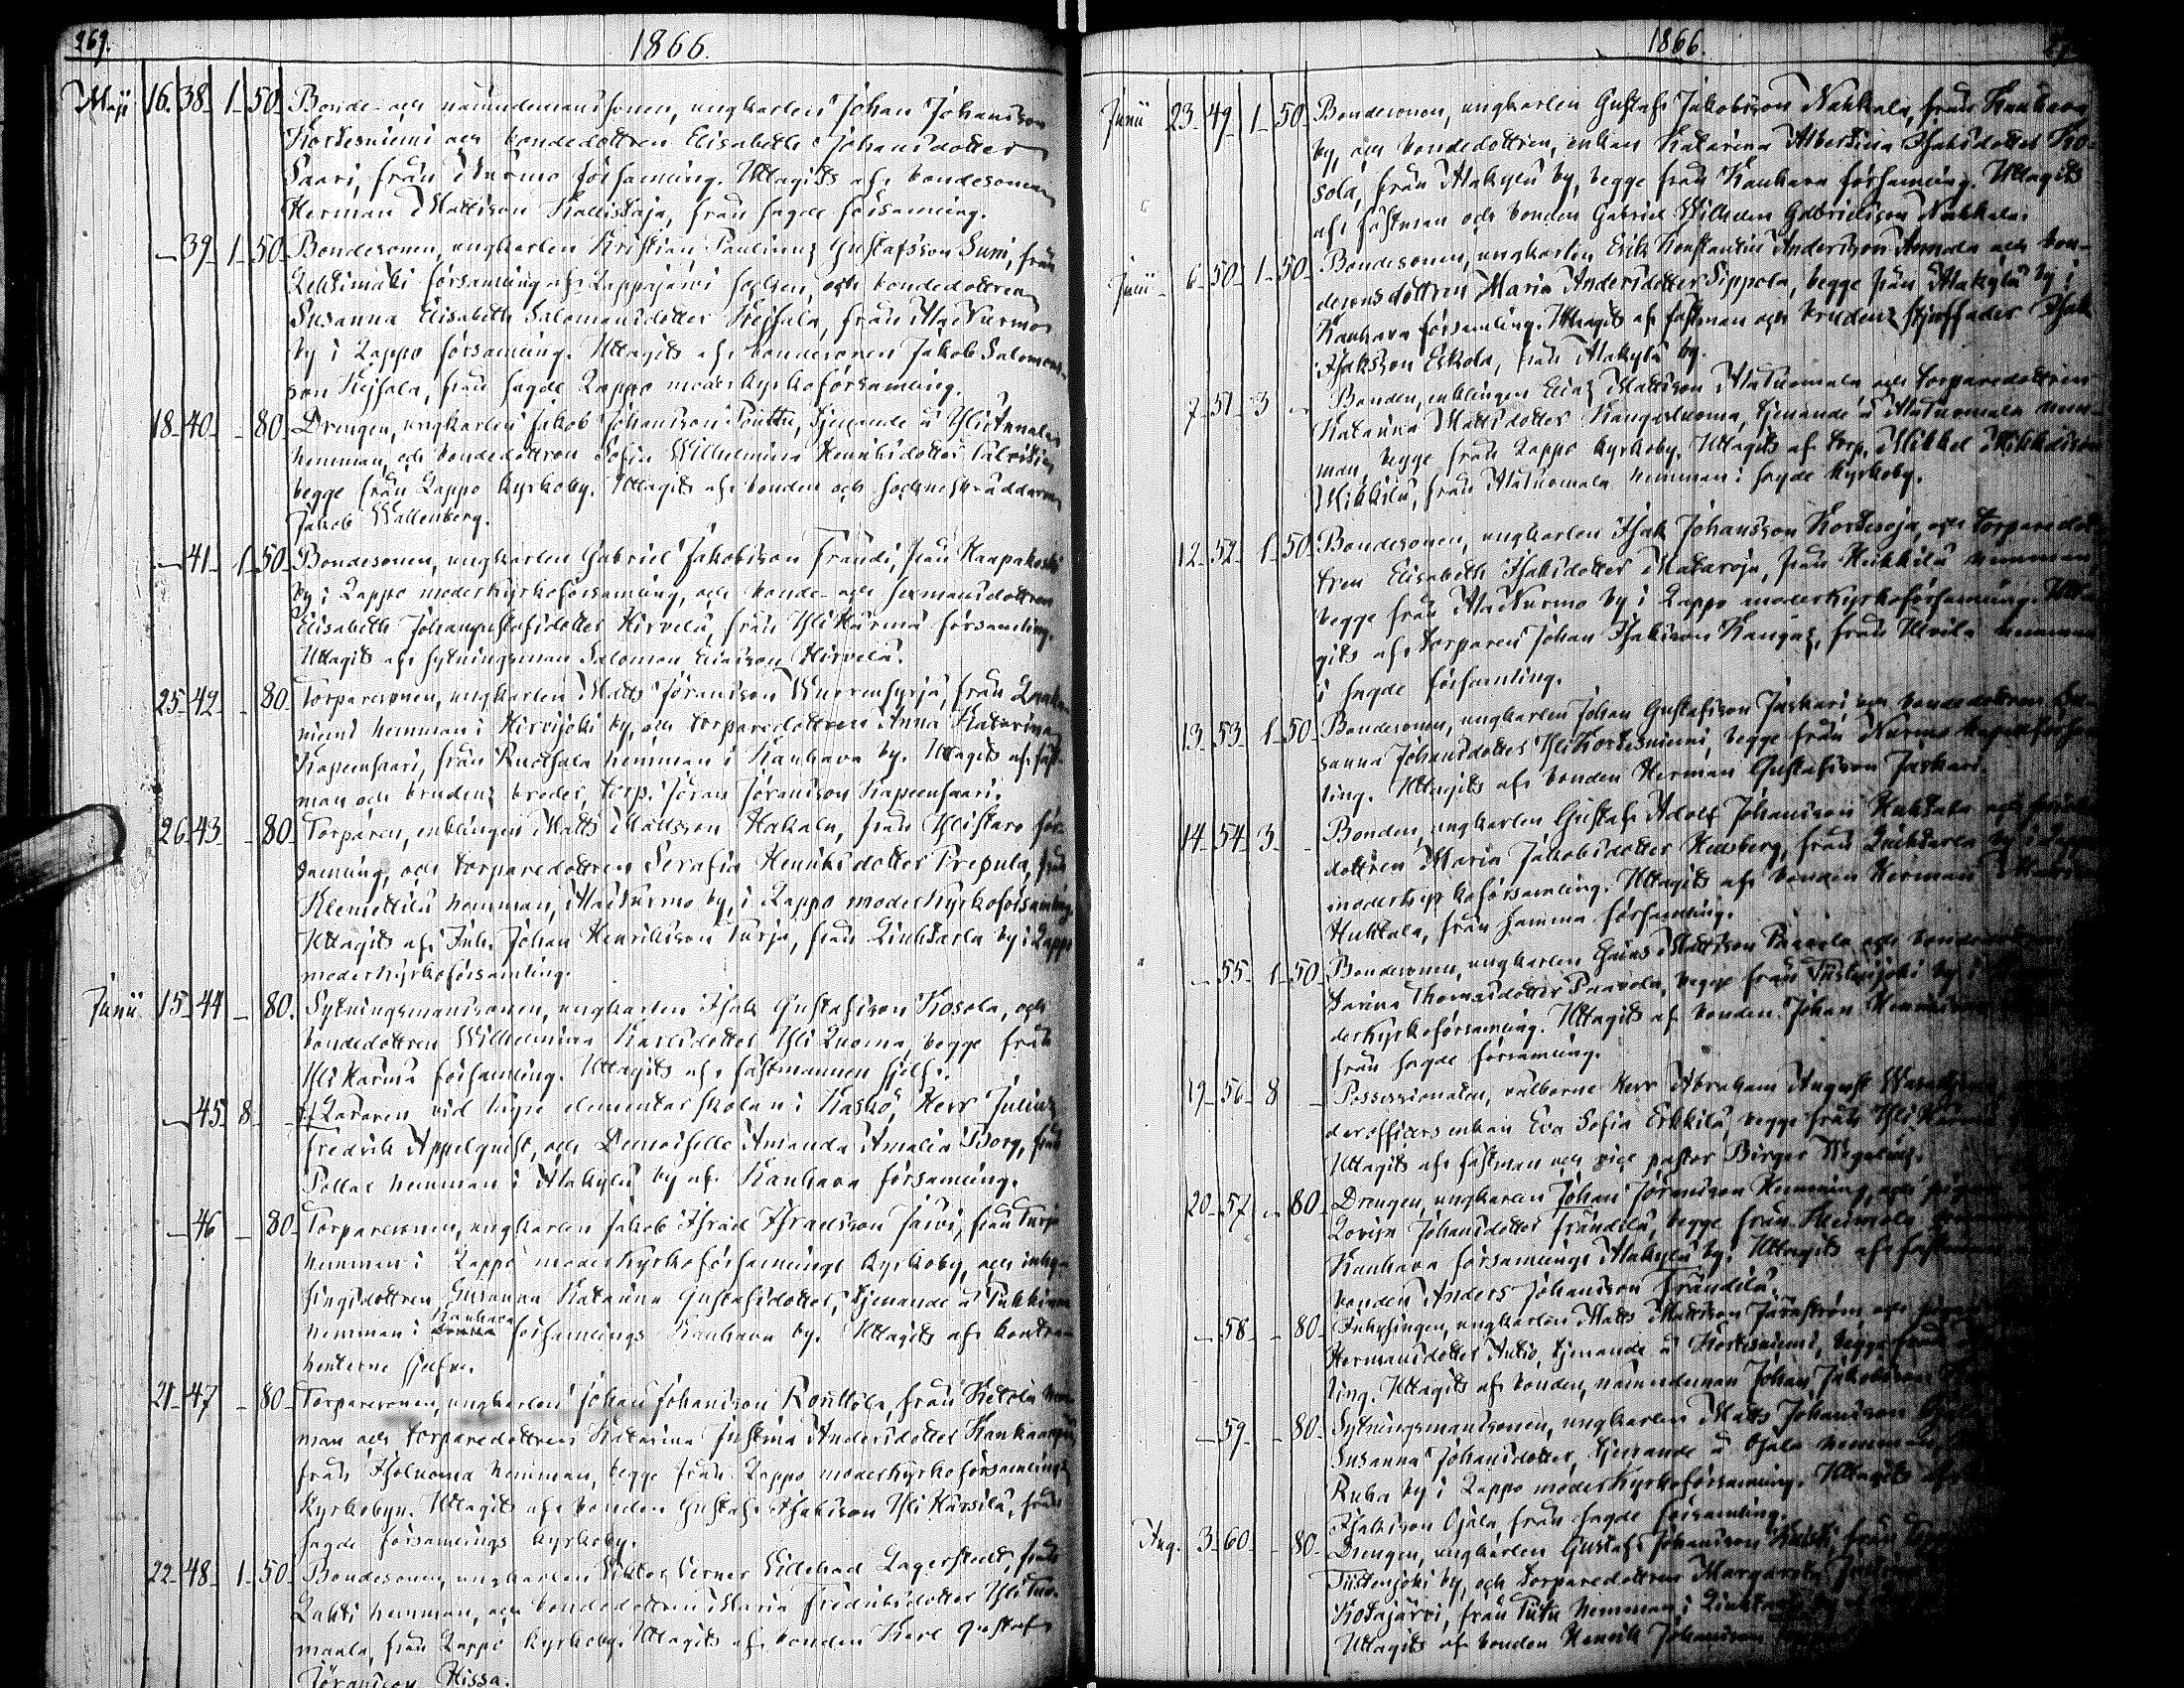 269.
1866.
Maji 16. 38. 1. 50. Bonde- och nämndemanssonen, ungkarlen Johan Johansson
Kortesniemi och bondedottren Elisabeth Johansdotter
Saari, från Nurmo församling. Uttagits af bondesonen
Herman Mattsson Kallistaja, från sagde församling.
— 39. 1. 50. Bondesonen, ungkarlen Kristian Paulinus Gustafsson Suni, från
Lehtimäki församling af Lappajärvi socken, och bondedottren
Susanna Elisabeth Salomonsdotter Kejsala, från Ala Nurmo
by i Lappo församling. Uttagits af bondesonen Jakob Salomons-
son Kejsala, från sagde Lappo moderkyrkoförsamling.
18. 40. - 80. Drengen, ungkarlen Jakob Johansson Pouttu, tjenande å YliAnnala
hemman, och bondedottren Sofia Wilhelmina Henriksdotter Talvitie,
begge från Lappo kyrkoby. Uttagits af bonden och sockneskräddaren
Jakob Wallenberg.
— 41. 1. 50. Bondesonen, ungkarlen Gabriel Jakobsson Frändi, från Haapakoski
by i Lappo moderkyrkoförsamling, och bonde- och sexmansdottren
Elisabeth Johangustafsdotter Hirvelä, från YliHärmä församling.
Uttagits af sytningsman Salomon Eliasson Hirvelä.
25. 42. - 80. Torparesonen, ungkarlen Matts Jöransson Wuorensyrjä, från
hemman i Hirvijoki by, och torparedottren Anna Katarina
Kapeensaari, från Ruotsala hemman i Kauhava by. Uttagits af fäst-
man och brudens broder, torp. Jöran Jöransson Kapeensaari.
26. 43. - 80. Torparen, enklingen Matts Mattsson Hakala, från Ylistaro för-
samling, och torparedottren Serafia Henriksdotter Prepula, från
Klemettilä hemman, Ala Nurmo by, i Lappo moderkyrkoförsamling.
Uttagits af Inh. Johan Henriksson Turja, från Liuhtarla by i Lappo
moderkyrkoförsamling.
Junii 15. 44. - 80. Sytningsmanssonen, ungkarlen Isak Gustafsson Kosola, och
bondedottren Wilhelmina Karlsdotter YliLuoma, begge från
YliHärmä församling. Uttagits af fästmannen sjelf.
— 45. 8. - Läraren vid högre elementarskolan i Kaskö, Herr Julius
Fredrik Appelqvist, och Demoiselle Amanda Amalia Borg, från
Pollar hemman i Alakylä by af Kauhava församling.
— 46. - 80. Torparesonen, ungkarlen Jakob Israel Israelsson Saivi, från Turja
hemman i Lappo moderkyrkoförsamlings kyrkoby, och inhy-
singsdottren Susanna Katarina Gustafsdotter, tjenande å Pukkinen
hemman i Kauhava församlings Kauhava by. Uttagits af kontra-
henterne sjelfve.
21. 47. - 80. Torparesonen, ungkarlen Johan Johansson Kouttola, från Ketola hem-
man och torparedottren Katarina Justina Andersdotter Kankaanpää,
från Isoluoma hemman, begge från Lappo moderkyrkoförsamlings
kyrkobyn. Uttagits af bonden Gustaf Isaksson YliKärsilä, från
sagde församlings kyrkoby.
22. 48. 1. 50. Bondesonen, ungkarlen Viktor Verner Lillebrad Lagerstedt, från
Lahti hemman, och bondedottren Maria Fredriksdotter YliTuo-
maala, från Lappo kyrkoby. Uttagits af bonden Karl Gustaf
Jöransson Hissa.
1866.
Junii 23. 49. 1. 50. Bondesonen, ungkarlen Gustaf Jakobsson Nahkala, från Kauhava
by, och bondedottren, enkan Katarina Albertina Isaksdotter Ko-
sola, från Alakylä by, begge från Kauhava församling. Uttagits
af fästman och bonden Gabriel Wilhelm Gabrielsson Nahkala.
Julii 6. 50. 1. 50. Bondesonen, ungkarlen Erik Konstantin Andersson Annala och bon-
desonsdottren Maria Andersdotter Sippola, begge från Alakylä by i
Kauhava församling. Uttagits af fästman och brudens styffader Isak
Isaksson Eskola, från Alakylä by.
7. 51. 3. - Bonden, enklingen Elias Mattsson AlaTuomala och torparedottren
Katarina Mattsdotter Kangasluoma, tjenande å AlaTuomala hem-
man, begge från Lappo kyrkoby. Uttagits af torp. Mikkel Mikkelsson
Mikkilä, från AlaTuomala hemman i sagde kyrkoby.
12. 52. 1. 50. Bondesonen, ungkarlen Isak Johansson Kortesoja, och torparedot-
tren Elisabeth Isaksdotter Mataroja, från Heikkilä hemman,
begge från Ala Nurmo by i Lappo moderkyrkoförsamling. Utta-
gits af torparen Johan Isaksson Kangas, från Ulvila hemman
i sagde församling.
13. 53. 1. 50. Bondesonen, ungkarlen Johan Gustafsson Jaskari, och bondedottren Su-
sanna Johansdotter YliKortesniemi, begge från Nurmo kapellförsam-
ling. Uttagits af bonden Herman Gustafsson Jaskari.
14. 54. 3. - Bonden, ungkarlen Gustaf Adolf Johansson Huhtala och
dottren Maria Jakobsdotter Hedberg, från Liuhtarla by i Lappo
moderkyrkoförsamling. Uttagits af bonden Herman
Huhtala, från samma församling.
— 55. 1. 50. Bondesonen, ungkarlen Mattsson Paavola och bondedottren
tarina Thomasdotter Paavola, begge från Tiistenjoki by i
derkyrkoförsamling. Uttagits af bonden Johan Henriksson
från sagde församling.
19. 56. 8 - Possessionaten, välborne Herr Abraham August
derofficersenkan Eva Sofia Erkkilä, begge från YliHärmä
Uttagits af fästman och vice pastor Birger Wegelius.
20. 57. - 80. Drengen, ungkarlen Johan Jöransson Hemming, och pigan
Lovisa Johansdotter Frändilä, begge från
Kauhava församlings Alakylä by. Uttagits af fästman
bonden Anders Johansson Frändilä.
— 58. - 80. Inhysingen, ungkarlen Matts Mattsson Jernström, och
Hermansdotter Autio, tjenande å Kortesniemi, begge från
ling. Uttagits af bonden, nämndeman Johan Jakobsson
— 59. - 80. Sytningsmanssonen, ungkarlen Matts Johansson Ojala
Susanna Johansdotter, tjenande å Ojala hemman
Ruha by i Lappo moderkyrkoförsamling. Uttagits af
Isaksson Ojala, från sagde församling.
Aug. 3. 60. - 80. Drengen, ungkarlen Gustaf Johansson från
Tiistenjoki by, och torparedottren Margareta
Kotajärvi, från Piitu hemman i Liuhtarla by
Uttagits af bonden Henrik Johansson